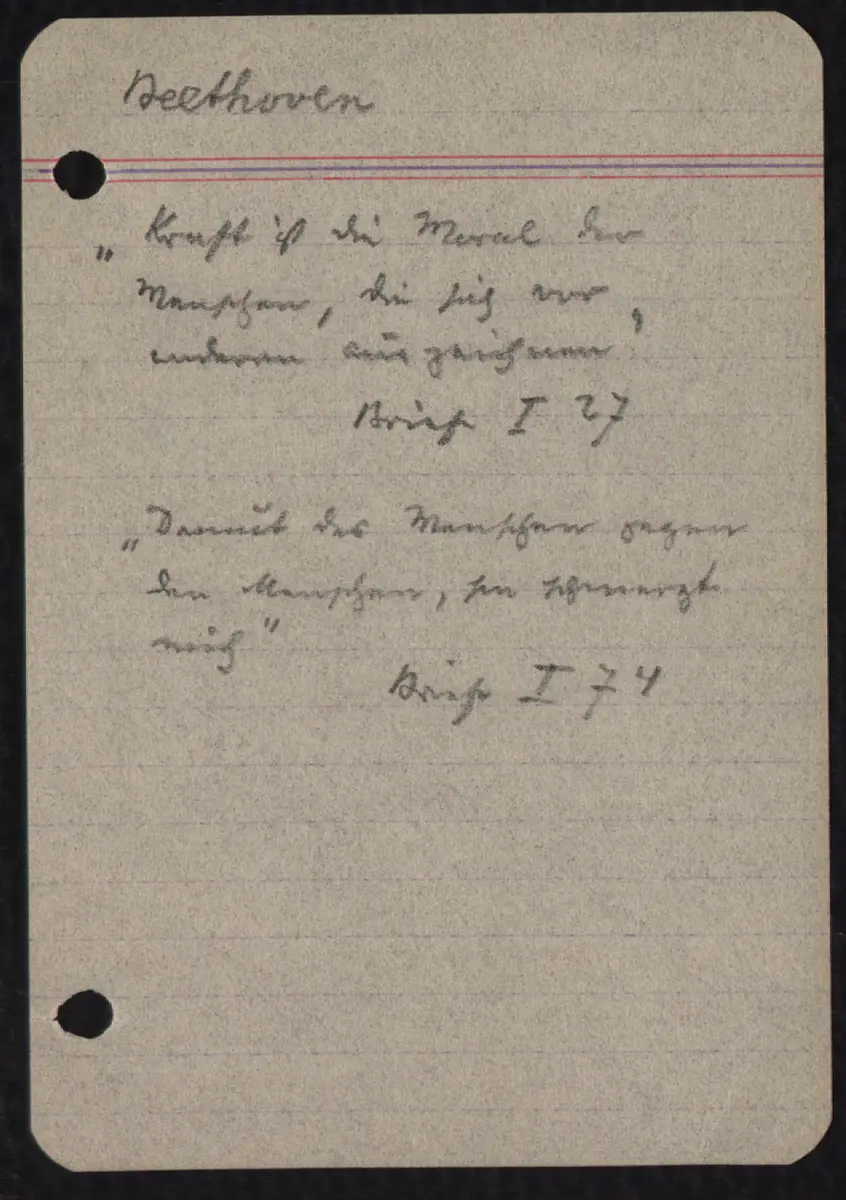 Beethoven
„Kraft ist die Moral der
Menschen, die sich vor
anderen auszeichnen‟
Briefe I 27
„Demut des Menschen gegen
den Menschen, sie schmerzt
mich"
Briefe I 74